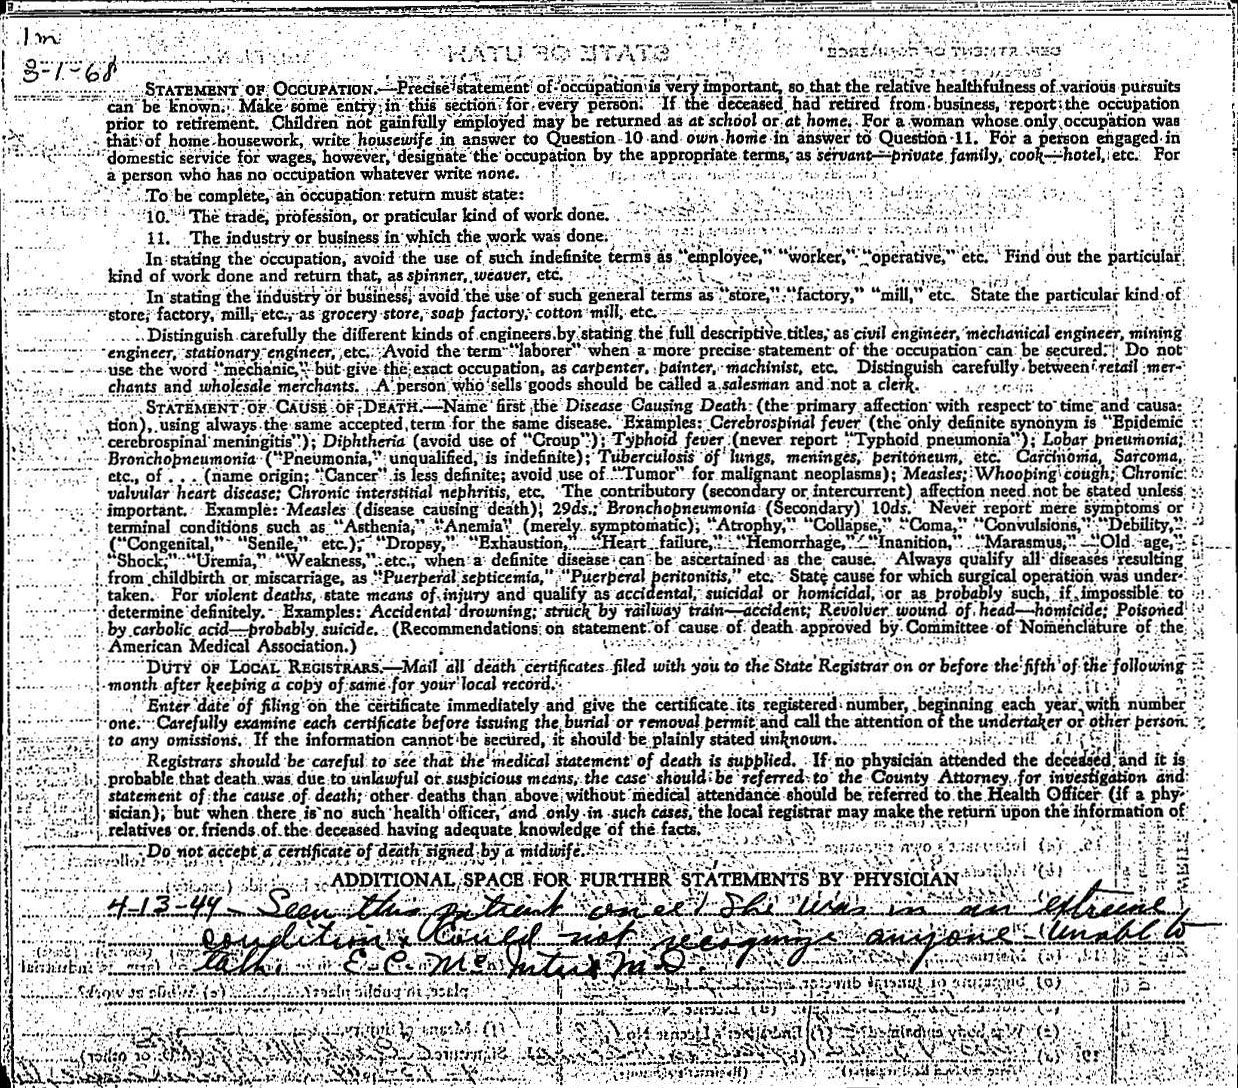 1m
3-1-68
STATEMENT OF OCCUPATION.—Precise statement of occupation is very important, so that the relative healthfulness of various pursuits
can be known. Make some entry in this section for every person. If the deceased had retired from business, report the occupation
prior to retirement. Children not gainfully employed may be returned as at school or at home. For a woman whose only occupation was
that of home housework, write housewife in answer to Question 10 and own home in answer to Question 11. For a person engaged in
domestic service for wages, however, designate the occupation by the appropriate terms, as servant—private family, cook—hotel, etc. For
a person who has no occupation whatever write none.
To be complete, an occupation return must state:
10. The trade, profession, or praticular kind of work done.
11. The industry or business in which the work was done.
In stating the occupation, avoid the use of such indefinite terms as "employee," "worker," "operative," etc. Find out the particular
kind of work done and return that, as spinner, weaver, etc.
In stating the industry or business, avoid the use of such general terms as "store," "factory," "mill," etc. State the particular kind of
store, factory, mill, etc., as grocery store, soap factory, cotton mill, etc.
Distinguish carefully the different kinds of engineers by stating the full descriptive titles, as civil engineer, mechanical engineer, mining
engineer, stationary engineer, etc. Avoid the term "laborer" when a more precise statement of the occupation can be secured. Do not
use the word "mechanic," but give the exact occupation, as carpenter, painter, machinist, etc. Distinguish carefully between retail mer-
chants and wholesale merchants. A person who sells goods should be called a salesman and not a clerk.
STATEMENT OF CAUSE OF DEATH.—Name first the Disease Causing Death (the primary affection with respect to time and causa-
tion), using always the same accepted term for the same disease. Examples: Cerebrospinal fever (the only definite synonym is "Epidemic
cerebrospinal meningitis"); Diphtheria (avoid use of "Croup"); Typhoid fever (never report "Typhoid pneumonia"); Lobar pneumonia;
Bronchopneumonia ("Pneumonia," unqualified, is indefinite); Tuberculosis of lungs, meninges, peritoneum, etc. Carcinoma, Sarcoma,
etc., of . . . (name origin; "Cancer" is less definite; avoid use of "Tumor" for malignant neoplasms); Measles; Whooping cough; Chronic
valvular heart disease; Chronic interstitial nephritis, etc. The contributory (secondary or intercurrent) affection need not be stated unless
important. Example: Measles (disease causing death); 29ds.; Bronchopneumonia (Secondary) 10ds. Never report mere symptoms or
terminal conditions such as "Asthenia," "Anemia" (merely symptomatic); "Atrophy," "Collapse," "Coma," "Convulsions," "Debility,"
("Congenital," "Senile," etc.); "Dropsy," "Exhaustion," "Heart failure," "Hemorrhage," "Inanition," "Marasmus," "Old age,"
"Shock," "Uremia," "Weakness," etc., when a definite disease can be ascertained as the cause. Always qualify all diseases resulting
from childbirth or miscarriage, as "Puerperal septicemia," "Puerperal peritonitis," etc. State cause for which surgical operation was under-
taken. For violent deaths, state means of injury and qualify as accidental, suicidal or homicidal, or as probably such, if impossible to
determine definitely. Examples: Accidental drowning; struck by railway train—accident; Revolver wound of head—homicide; Poisoned
by carbolic acid—probably suicide. (Recommendations on statement of cause of death approved by Committee of Nomenclature of the
American Medical Association.)
DUTY OF LOCAL REGISTRARS.—Mail all death certificates filed with you to the State Registrar on or before the fifth of the following
month after keeping a copy of same for your local record.
Enter date of filing on the certificate immediately and give the certificate its registered number, beginning each year with number
one. Carefully examine each certificate before issuing the burial or removal permit and call the attention of the undertaker or other person
to any omissions. If the information cannot be secured, it should be plainly stated unknown.
Registrars should be careful to see that the medical statement of death is supplied. If no physician attended the deceased and it is
probable that death was due to unlawful or suspicious means, the case should be referred to the County Attorney for investigation and
statement of the cause of death; other deaths than above without medical attendance should be referred to the Health Officer (if a phy-
sician); but when there is no such health officer, and only in such cases, the local registrar may make the return upon the information of
relatives or friends of the deceased having adequate knowledge of the facts.
Do not accept a certificate of death signed by a midwife.
ADDITIONAL SPACE FOR FURTHER STATEMENTS BY PHYSICIAN
4-13-44 - Seen this patient once! She was in an extreme
condition & could not recognize anyone - unable to
talk. E. C. M.D.